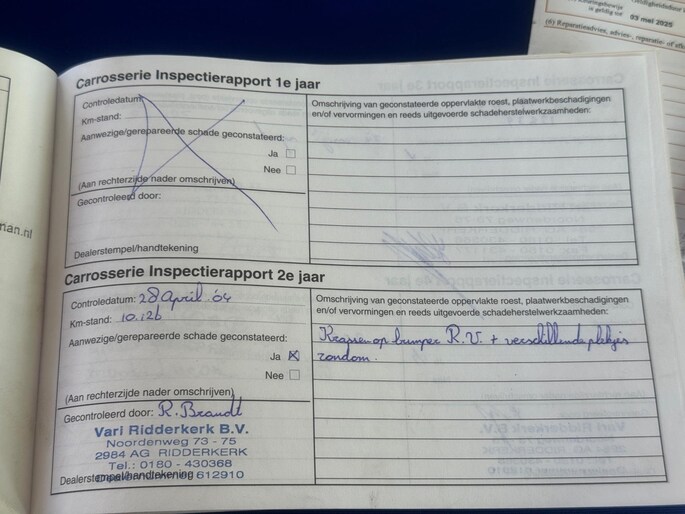 is geldig tot 03 mei 2025
(6) Reparatieadvies, advies-, reparatie- of
nan.nl
Carrosserie Inspectierapport 1e jaar
Controledatum:
Km-stand:
Aanwezige/gerepareerde schade geconstateerd:
Ja
Nee
(Aan rechterzijde nader omschrijven)
Gecontroleerd door:
Dealerstempel/handtekening
Omschrijving van geconstateerde oppervlakte roest, plaatwerkbeschadigingen
en/of vervormingen en reeds uitgevoerde schadeherstelwerkzaamheden:
Carrosserie Inspectierapport 2e jaar
Controledatum: 28 April '04
Km-stand: 10.126
Aanwezige/gerepareerde schade geconstateerd:
Ja
Nee
(Aan rechterzijde nader omschrijven)
Gecontroleerd door: R. Brandt
Vari Ridderkerk B.V.
Noordenweg 73 - 75
2984 AG RIDDERKERK
Tel.: 0180 - 430368
Dealerstempel/handtekening 612910
Omschrijving van geconstateerde oppervlakte roest, plaatwerkbeschadigingen
en/of vervormingen en reeds uitgevoerde schadeherstelwerkzaamheden:
Krassen op bumper R.V. + verschillende plekjes
rondom.